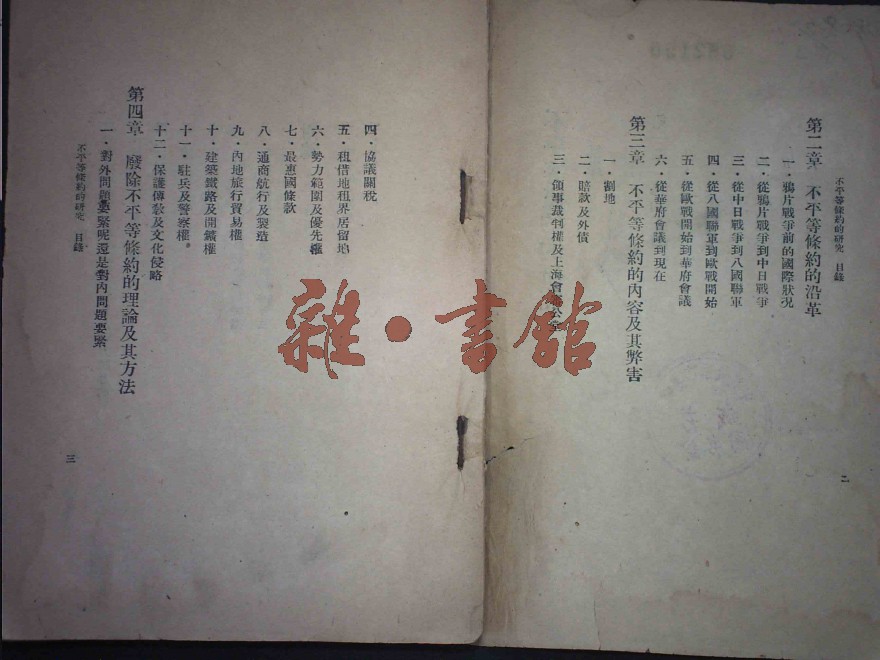 不平等條約的研究 目錄
第二章 不平等條約的沿革
一・鴉片戰爭前的國際狀况
二・從鴉片戰爭到中日戰爭
三・從中日戰爭到八國聯軍
四・從八國聯軍到歐戰開始
五・從歐戰開始到華府會議
六・從華府會議到現在
第三章 不平等條約的內容及其弊害
一・割地
二・賠款及外債
三・領事裁判權及上海會公堂
二
四・協議關稅
五・租借地租界居留地
六・勢力範圍及優先權
七・最惠國條款
八・通商航行及製造
九・內地旅行貿易權
十・建築鐵路及開鑛權
十一・駐兵及警察權。
十二・保護傳敎及文化侵略
第四章 廢除不平等條約的理論及其方法
一・對外問題要緊呢還是對內問題要緊
不平等條約的研究 目錄
三
雜・書館